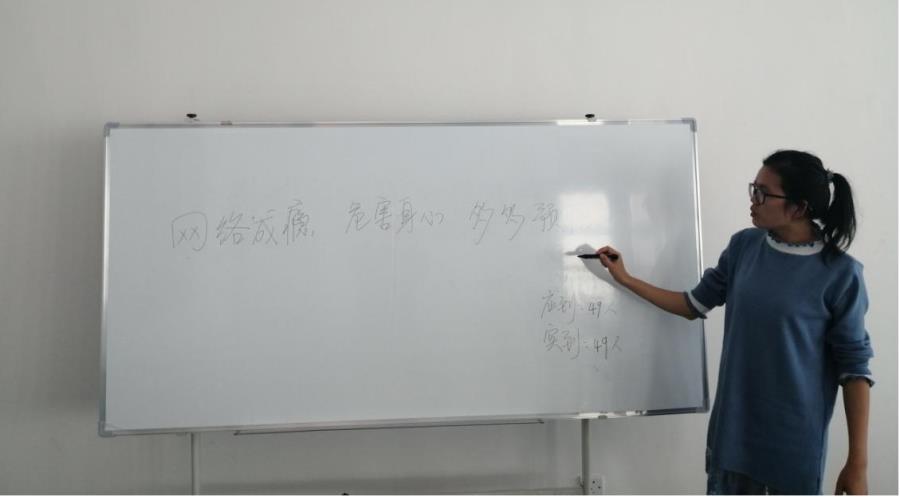 网络成瘾 危害身心 多多预
应到:49人
实到:49人